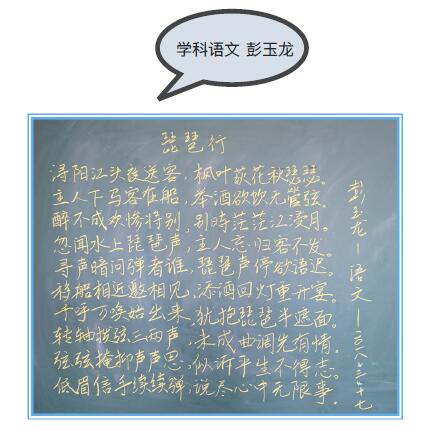 学科语文 彭玉龙
琵琶行
浔阳江头夜送客,枫叶荻花秋瑟瑟。
主人下马客在船,举酒欲饮无管弦。
醉不成欢惨将别,别时茫茫江浸月。
忽闻水上琵琶声,主人忘归客不发。
寻声暗问弹者谁,琵琶声停欲语迟。
移船相近邀相见,添酒回灯重开宴。
千呼万唤始出来,犹抱琵琶半遮面。
转轴拨弦三两声,未成曲调先有情。
弦弦掩抑声声思,似诉平生不得志。
低眉信手续续弹,说尽心中无限事。
彭玉龙—语文—